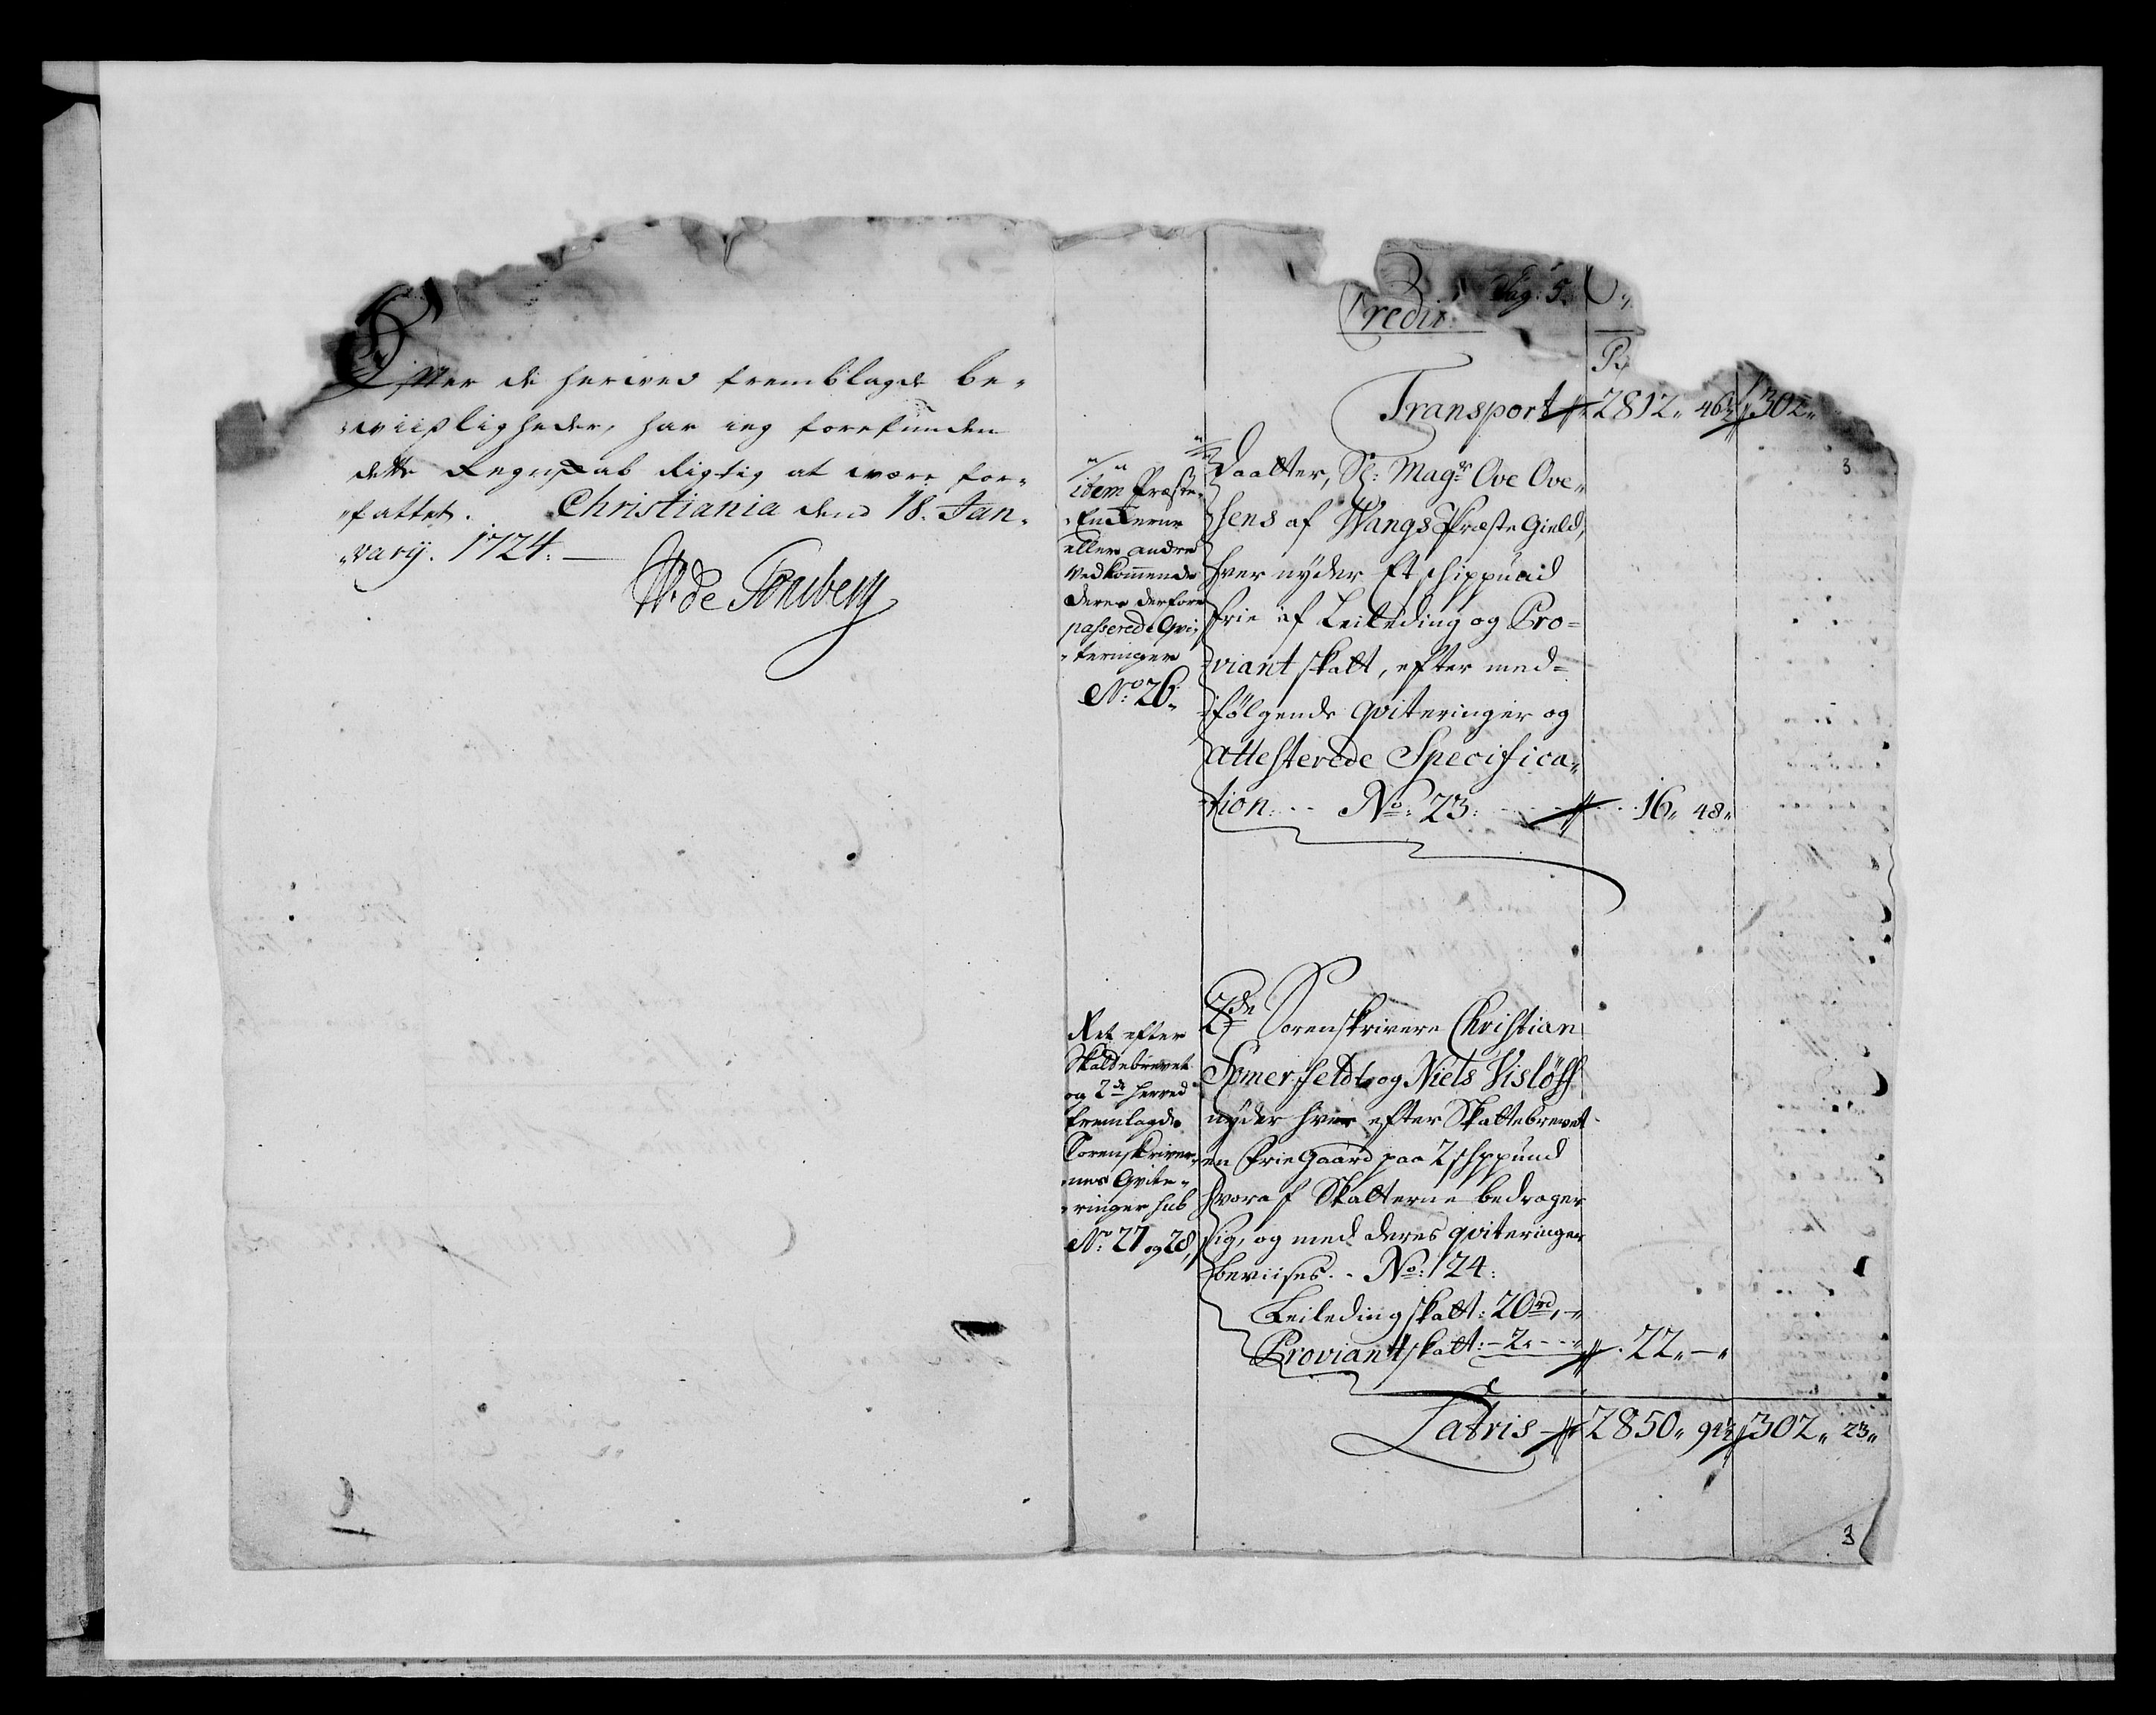 Efter de herved fremblagde be„
„viisligheder, har ieg forefunden
dette Regnskab Rigtig at være for„
„fattet. Christiania den 18. Jan„
„uarij. 1724. —
W: de
Pag: 5.
Credit
Transport 2812„ 46½ 302„
3
item Præste„
„Enkerne
eller andre
vedkommende
deres derfore
passerede Qvi„
„teringer
No: 26„
Daatter, Sl: Magr Ove Ove„
sens af Wangs Præste Gield,
hver nyder Et schippund
frie af Leileding og Pro=
viant skatt, efter med=
følgende qviteringer og
attesterede Specifica„
tion... No: 23: 16„ 48„
Ret efter
Skattebrevet
og 2de herved
fremlagde
Sorenskriver„
„nes Qvite„
„ringer sub
No: 27 og 28,
2de Sorenskrivere Christian
Somerfeldt og Niels Visløff
nyder hver efter Skattebrevet
en frie Gaard paa 2 schippund
hvoraf Skatterne bedrager
sig, og med deres qviteringer
beviises.. No: 124:
Leileding skatt: 20 rd, „
Proviant skatt: – 2. – – „ 22„ – „
Latris 2850„ 94½ 302„ 23„
3